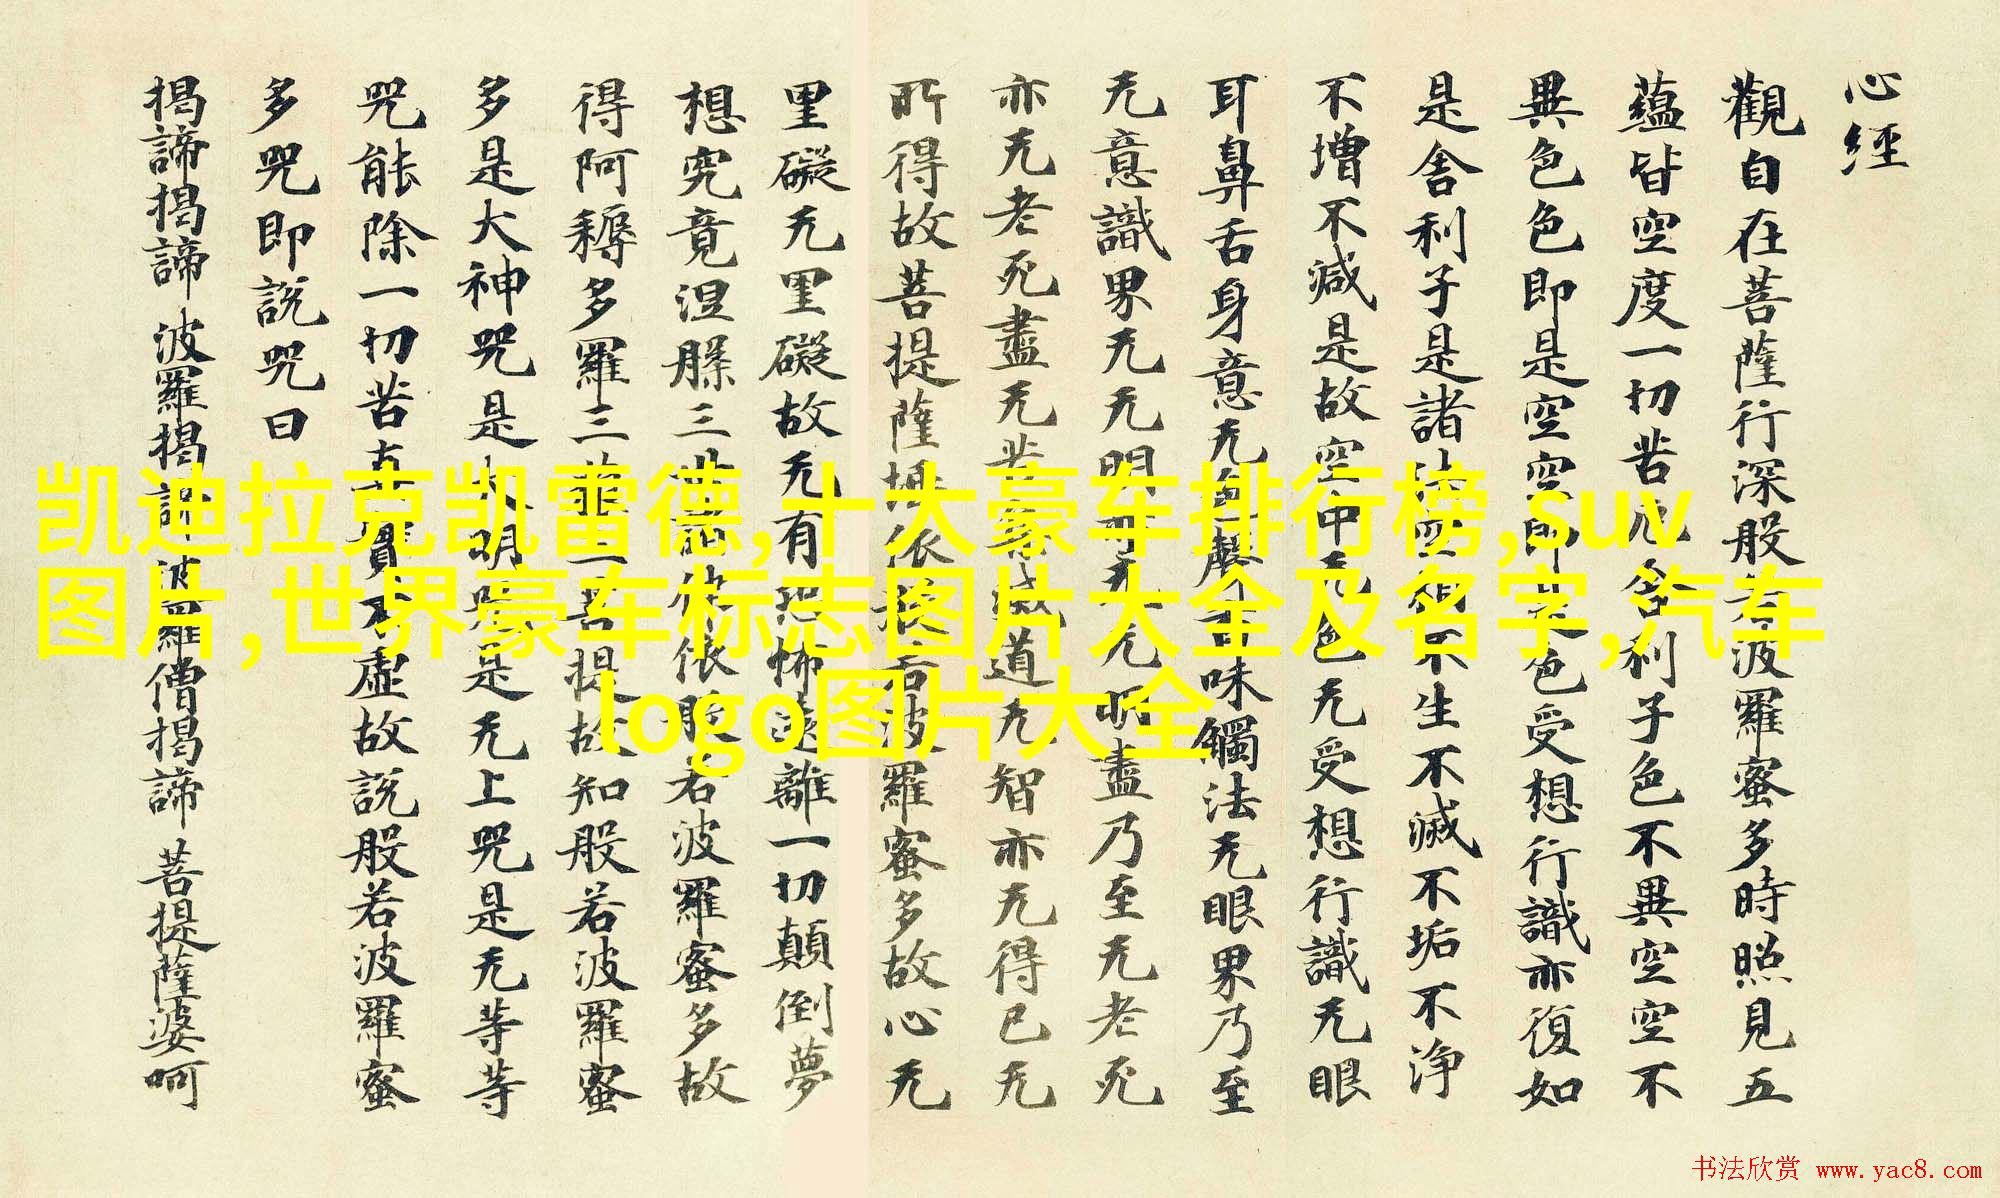 心經
觀自在菩薩行深般若波羅蜜多時照見五
蘊皆空度一切苦厄舍利子色不異空空不
異色色即是空空即是色受想行識亦復如
是舍利子是諸法空相不生不滅不垢不净
不增不減是故空中无色无受想行識无眼
耳鼻舌身意无色聲香味觸法无眼界乃至
无意識界无无明亦无无明盡乃至无老死
亦无老死盡无苦集滅道无智亦无得已无
所得故菩提薩埵依般若波羅蜜多故心无
罣礙无罣礙故无有恐怖遠離一切顛倒夢
想究竟涅槃三世諸佛依般若波羅蜜多故
得阿耨多羅三藐三菩提故知般若波羅蜜
多是大神咒是大明咒是无上咒是无等等
咒能除一切苦真實不虛故説般若波羅蜜
多咒即説咒曰
揭諦揭諦 波羅揭諦 波羅僧揭諦 菩提薩婆呵
凯迪拉克凯雷德,十大豪车排行榜,suv
图片,世界豪车标志图片大全及名字,汽车
logo图片大全
书法欣赏 www.yac8.com